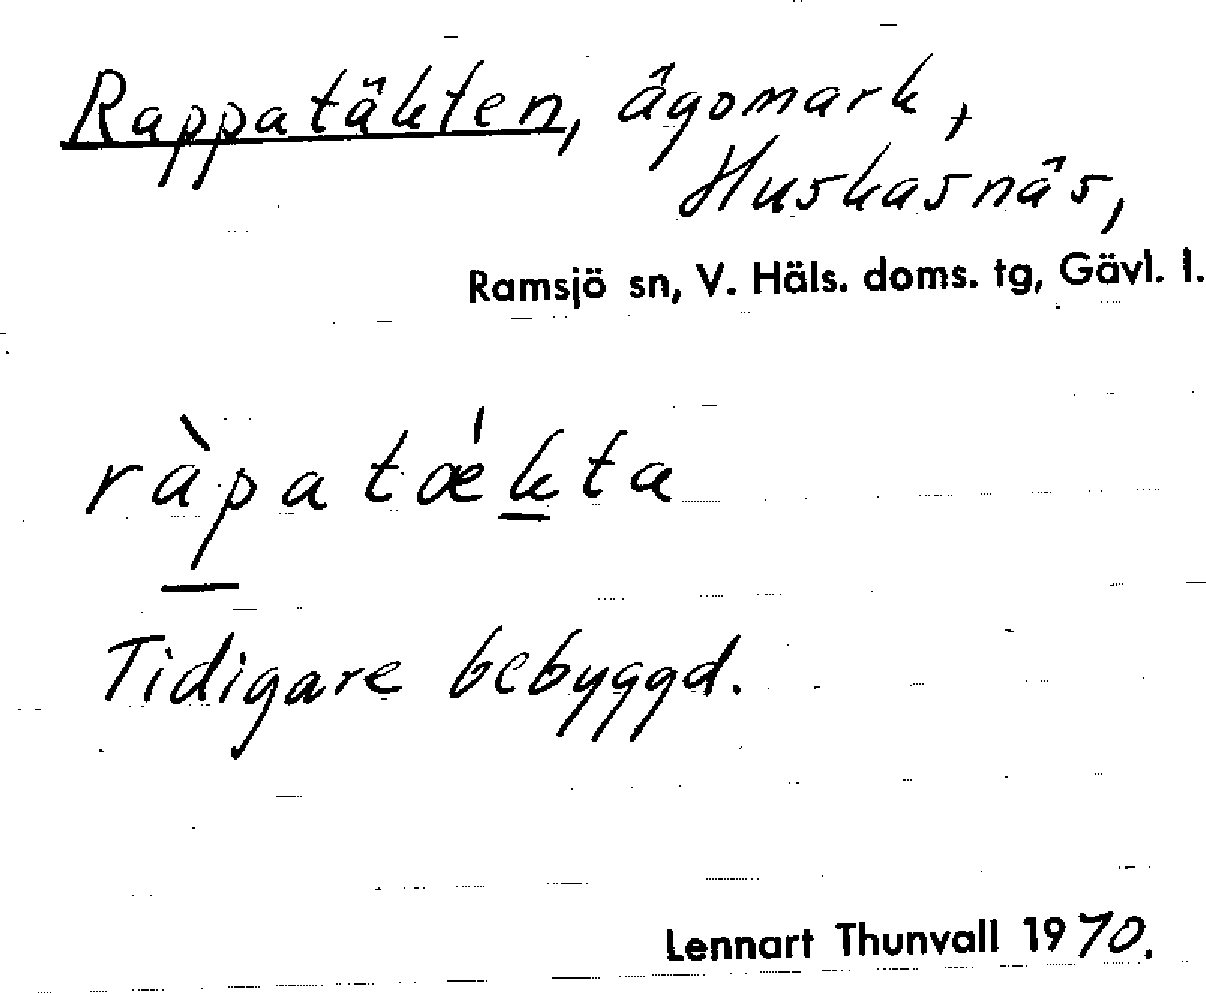 Rappatäkten, ägomark,
Huskasnäs,
Ramsjö sn, V. Häls. doms. tg, Gävl. l.
ràpatǽkta
Tidigare bebyggd.
Lennart Thunvall 1970.